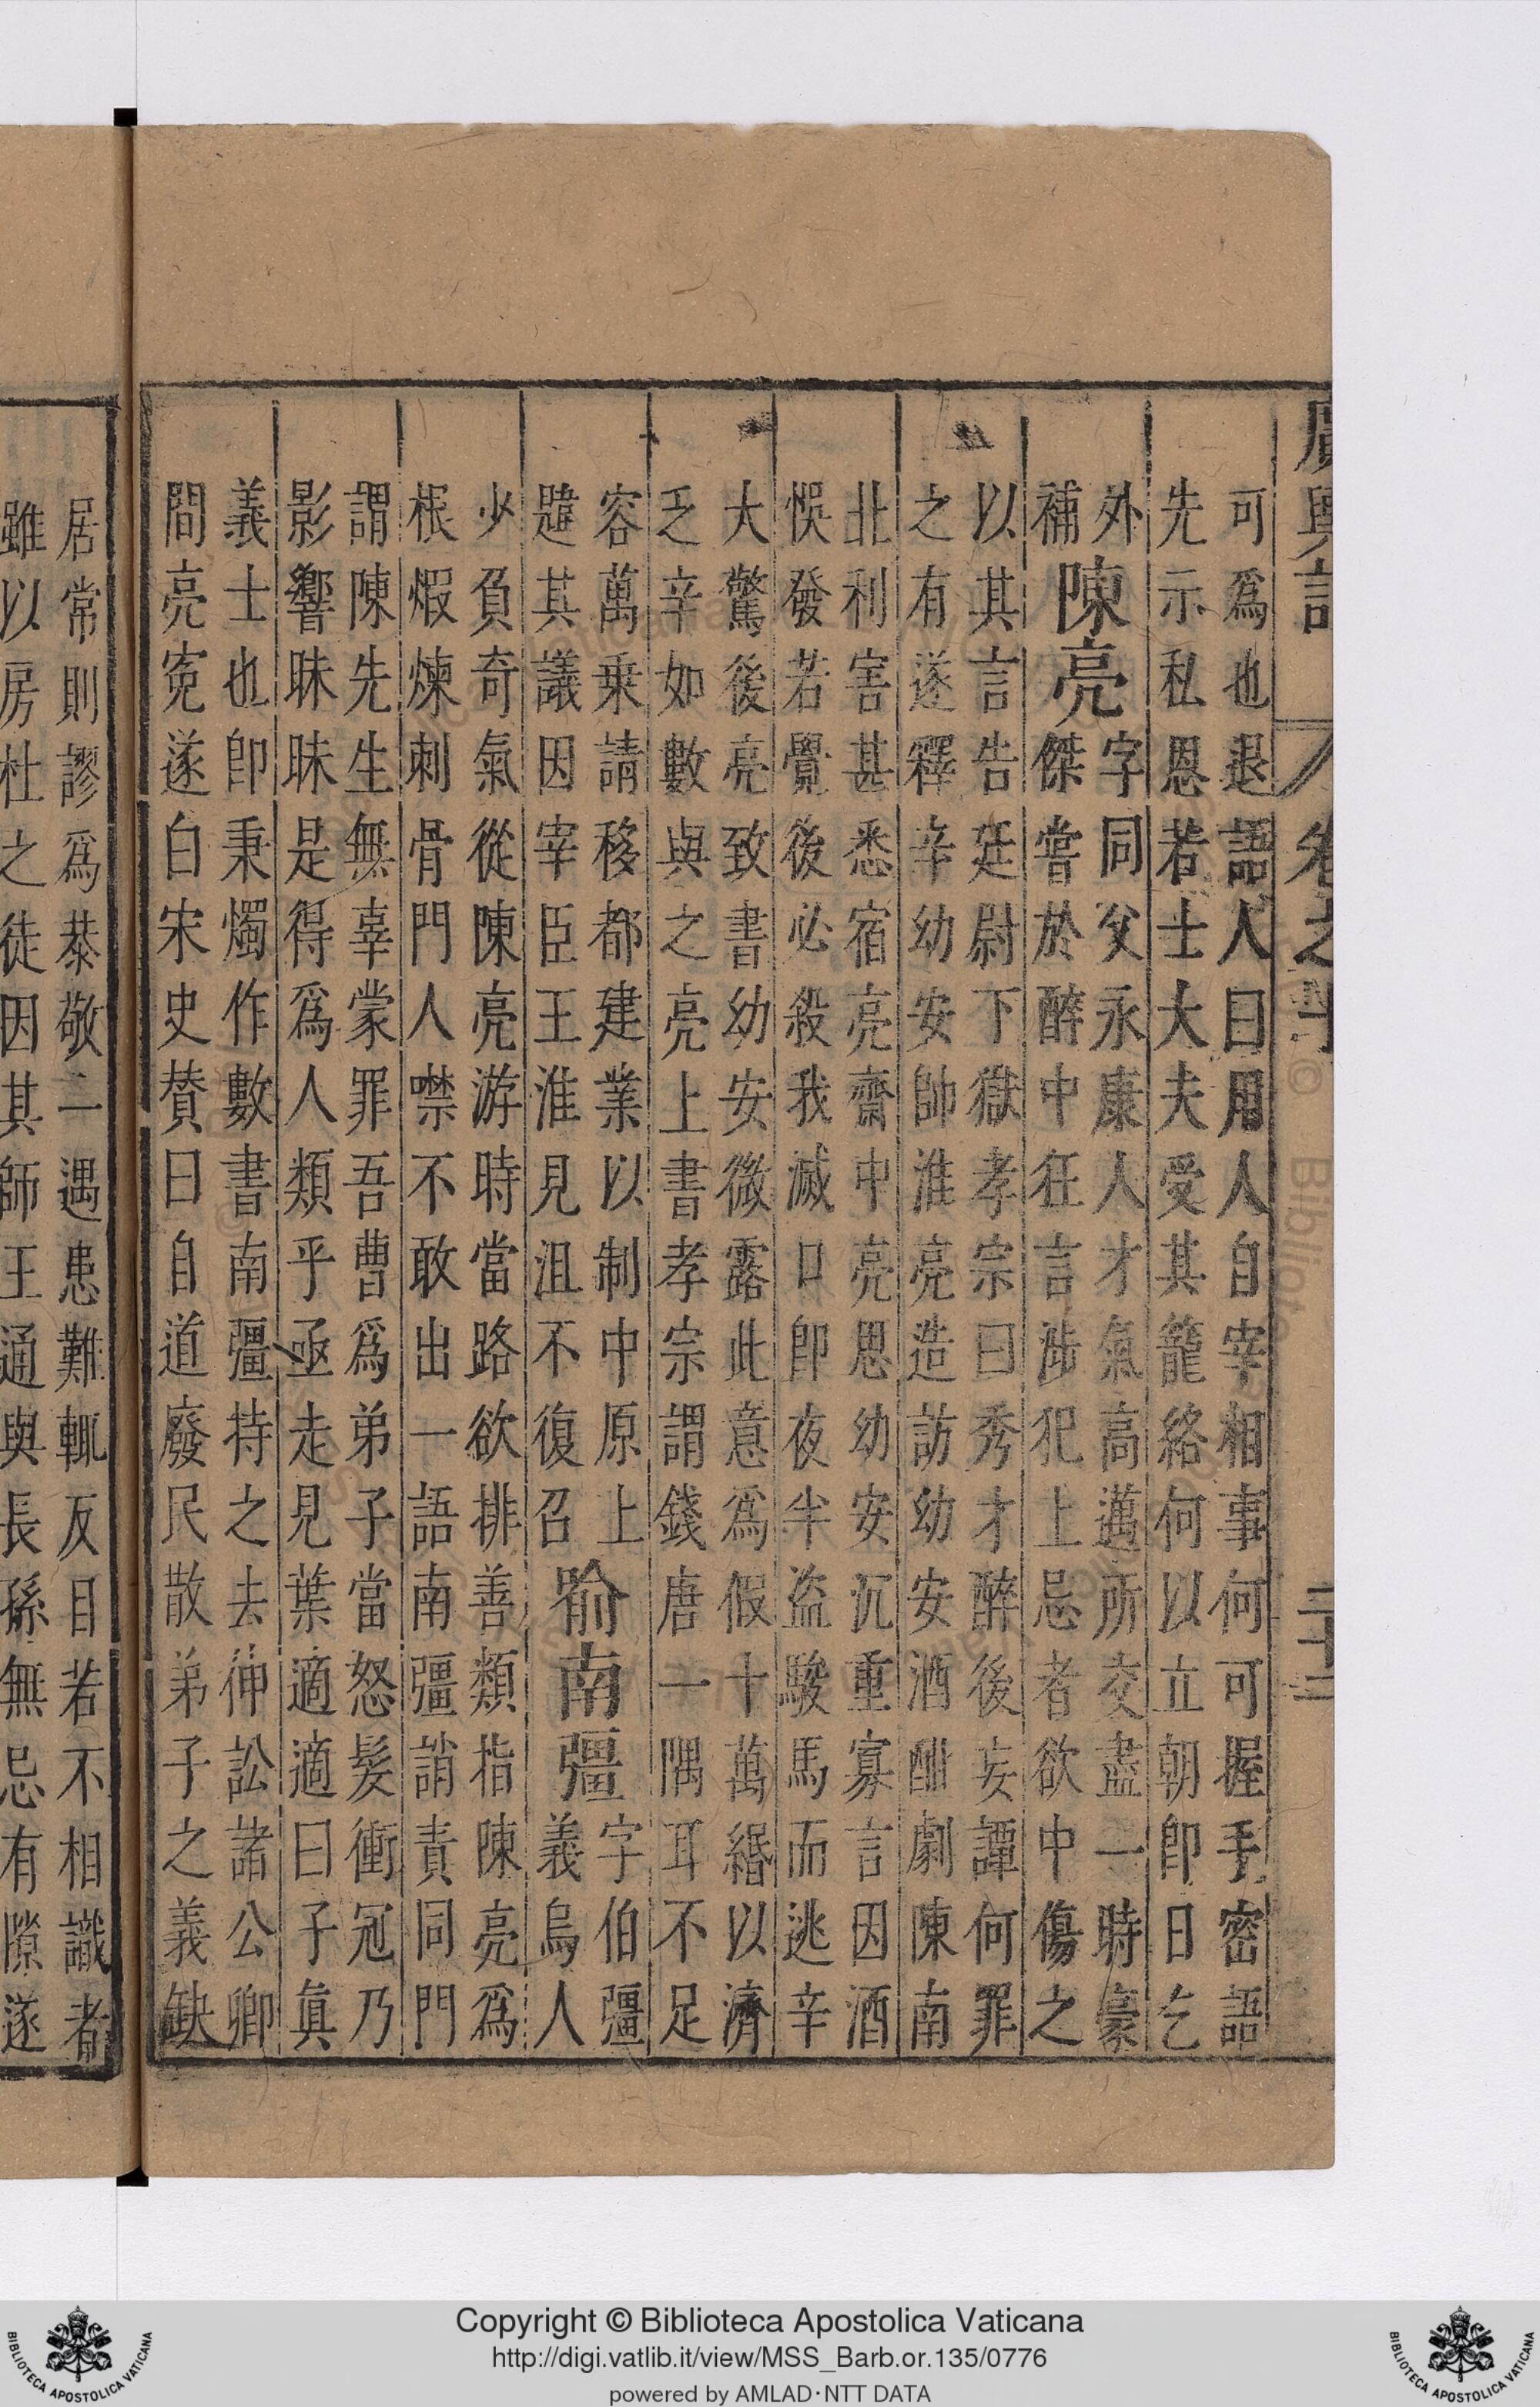 廣輿記 卷之十 二十三
可爲也退語人曰用人自宰相事何可握手密語
先示私恩若士大夫受其籠絡何以立朝卽日乞
外
補
陳亮
字同父永康人才氣高邁所交盡一時豪
傑嘗於醉中狂言涉犯上忌者欲中傷之
以其言告廷尉下獄孝宗曰秀才醉後妄譚何罪
之有遂釋辛幼安帥淮亮造訪幼安酒酣劇陳南
北利害甚悉宿亮齋中亮思幼安沉重寡言因酒
悞發若覺後必殺我滅口卽夜半盜駿馬而逃辛
大驚後亮致書幼安微露此意爲假十萬緡以濟
乏辛如數與之亮上書孝宗謂錢唐一隅耳不足
容萬乗請移都建業以制中原上
韙其議因宰臣王淮見沮不復召
喻南彊
字伯彊
義烏人
少負奇氣從陳亮游時當路欲排善類指陳亮爲
根煆煉刺骨門人噤不敢出一語南彊誚責同門
謂陳先生無辜蒙罪吾曹爲弟子當怒髮衝冠乃
影響昧昧是得爲人類乎亟走見葉適適曰子眞
義士也卽秉燭作數書南彊持之去伸訟諸公卿
間亮寃遂白宋史贊曰自道廢民散弟子之義缺
居常則謬爲恭敬二遇患難輒反目若不相識者
雖以房杜之徒因其師王通與長孫無忌有隙遂
Copyright © Biblioteca Apostolica Vaticana
http://digi.vatlib.it/view/MSS_Barb.or.135/0776
powered by AMLAD·NTT DATA
BIBLIOTECA APOSTOLICA VATICANA
BIBLIOTECA APOSTOLICA VATICANA